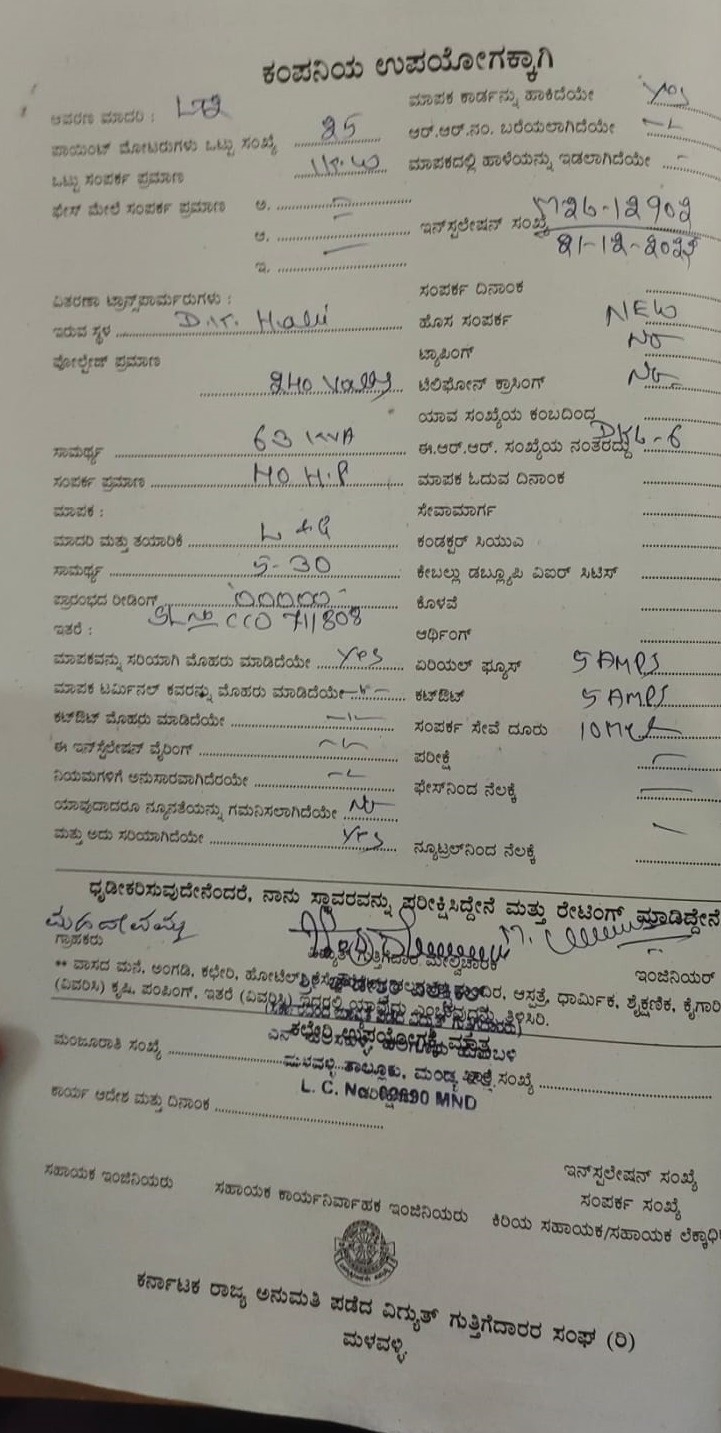 ಕಂಪನಿಯ ಉಪಯೋಗಕ್ಕಾಗಿ
ಆವರಣ ಮಾದರಿ : ಮಾಪಕ ಕಾರ್ಡನ್ನು ಹಾಕಿದೆಯೇ Yes
ಪಾಯಿಂಟ್ ಮೋಟರುಗಳು ಒಟ್ಟು ಸಂಖ್ಯೆ 25 ಆರ್.ಆರ್.ನಂ. ಬರೆಯಲಾಗಿದೆಯೇ
ಒಟ್ಟು ಸಂಪರ್ಕ ಪ್ರಮಾಣ ಮಾಪಕದಲ್ಲಿ ಹಾಳೆಯನ್ನು ಇಡಲಾಗಿದೆಯೇ
ಫೇಸ್ ಮೇಲೆ ಸಂಪರ್ಕ ಪ್ರಮಾಣ ಅ.
ಆ. ಇನ್‌ಸ್ಟಲೇಷನ್ ಸಂಖ್ಯೆ 26-12902
ಇ. 21-12-202
ಸಂಪರ್ಕ ದಿನಾಂಕ
ವಿತರಣಾ ಟ್ರಾನ್ಸ್‌ಪಾರ್ಮರುಗಳು :
ಇರುವ ಸ್ಥಳ ಹೊಸ ಸಂಪರ್ಕ NEW
ವೋಲ್ಟೇಜ್ ಪ್ರಮಾಣ 240 ಟ್ಯಾಪಿಂಗ್ NO
ಟೆಲಿಫೋನ್ ಕ್ರಾಸಿಂಗ್ NO
ಯಾವ ಸಂಖ್ಯೆಯ ಕಂಬದಿಂದ
ಸಾಮರ್ಥ್ಯ 63 KVA ಈ.ಆರ್.ಆರ್. ಸಂಖ್ಯೆಯ ನಂತರದ್ದು
ಸಂಪರ್ಕ ಪ್ರಮಾಣ 40 H.P ಮಾಪಕ ಓದುವ ದಿನಾಂಕ
ಮಾಪಕ : ಸೇವಾಮಾರ್ಗ
ಮಾದರಿ ಮತ್ತು ತಯಾರಿಕೆ L &G ಕಂಡಕ್ಟರ್ ಸಿಯುಎ
ಸಾಮರ್ಥ್ಯ 5-30 ಕೇಬಲ್ಲು ಡಬ್ಲ್ಯೂಪಿ ಎಐರ್ ಸಿಟಿಸ್
ಪ್ರಾರಂಭದ ರೀಡಿಂಗ್ 00000 ಕೊಳವೆ
ಇತರೆ : SL No CCO 711808 ಆರ್ಥಿಂಗ್
ಮಾಪಕವನ್ನು ಸರಿಯಾಗಿ ಮೊಹರು ಮಾಡಿದೆಯೇ Yes ಏರಿಯಲ್ ಫ್ಯೂಸ್ 5 AMPS
ಮಾಪಕ ಟರ್ಮಿನಲ್ ಕವರನ್ನು ಮೊಹರು ಮಾಡಿದೆಯೇ ಕಟ್‌ಔಟ್ 5 AMPS
ಕಟ್‌ಔಟ್ ಮೊಹರು ಮಾಡಿದೆಯೇ ಸಂಪರ್ಕ ಸೇವೆ ದೂರು
ಈ ಇನ್‌ಸ್ಟಲೇಷನ್ ವೈರಿಂಗ್ ಪರೀಕ್ಷೆ
ನಿಯಮಗಳಿಗೆ ಅನುಸಾರವಾಗಿದೆರಯೇ ಫೇಸ್‌ನಿಂದ ನೆಲಕ್ಕೆ
ಯಾವುದಾದರೂ ನ್ಯೂನತೆಯನ್ನು ಗಮನಿಸಲಾಗಿದೆಯೇ No
ಮತ್ತು ಅದು ಸರಿಯಾಗಿದೆಯೇ Yes ನ್ಯೂಟ್ರಲ್‌ನಿಂದ ನೆಲಕ್ಕೆ
ಧೃಡೀಕರಿಸುವುದೇನೆಂದರೆ, ನಾನು ಸ್ಥಾವರವನ್ನು ಪರೀಕ್ಷಿಸಿದ್ದೇನೆ ಮತ್ತು ರೇಟಿಂಗ್ ಮಾಡಿದ್ದೇನೆ
ಗ್ರಾಹಕರು ಗುತ್ತಿಗೆದಾರ ಮೇಲ್ವಿಚಾರಕ ಇಂಜಿನಿಯರ್
** ವಾಸದ ಮನೆ, ಅಂಗಡಿ, ಕಛೇರಿ, ಹೋಟೆಲ್, ಆಸ್ಪತ್ರೆ, ಧಾರ್ಮಿಕ, ಶೈಕ್ಷಣಿಕ, ಕೈಗಾರಿ
(ವಿವರಿಸಿ) ಕೃಷಿ, ಪಂಪಿಂಗ್, ಇತರೆ (ವಿವರಿಸಿ) ಇದರಲ್ಲಿ ಯಾವುದು ಎಂಬುವುದನ್ನು ತಿಳಿಸಿರಿ.
ಕಛೇರಿ ಉಪಯೋಗಕ್ಕೆ ಮಾತ್ರ
ಮಂಜೂರಾತಿ ಸಂಖ್ಯೆ ಮಳವಳ್ಳಿ ತಾಲ್ಲೂಕು, ಮಂಡ್ಯ ಸಂಖ್ಯೆ
L. C. No. MND
ಕಾರ್ಯ ಆದೇಶ ಮತ್ತು ದಿನಾಂಕ
ಇನ್‌ಸ್ಟಲೇಷನ್ ಸಂಖ್ಯೆ
ಸಂಪರ್ಕ ಸಂಖ್ಯೆ
ಸಹಾಯಕ ಇಂಜಿನಿಯರು ಸಹಾಯಕ ಕಾರ್ಯನಿರ್ವಾಹಕ ಇಂಜಿನಿಯರು ಕಿರಿಯ ಸಹಾಯಕ/ಸಹಾಯಕ ಲೆಕ್ಕಾಧಿ
ಕರ್ನಾಟಕ ರಾಜ್ಯ ಅನುಮತಿ ಪಡೆದ ವಿದ್ಯುತ್ ಗುತ್ತಿಗೆದಾರರ ಸಂಘ (ರಿ)
ಮಳವಳ್ಳಿ